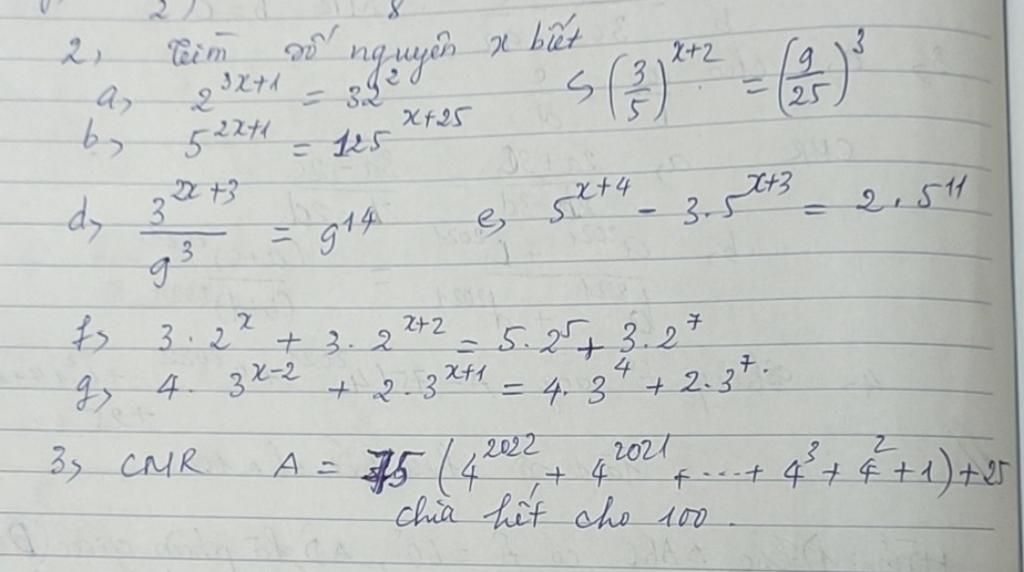 2, Tìm số nguyên x biết
a, 2^{3x+1} = 32^2 c, (3/5)^{x+2} = (9/25)^3
b, 5^{2x+1} = 125^{x+25}
d, 3^{2x+3}/9^3 = 9^{14} e, 5^{x+4} - 3.5^{x+3} = 2.5^{11}
f, 3.2^x + 3.2^{x+2} = 5.2^5 + 3.2^7
g, 4.3^{x-2} + 2.3^{x+1} = 4.3^4 + 2.3^7.
3, CMR A = 75 (4^{2022} + 4^{2021} + ... + 4^3 + 4^2 + 1) + 25
chia hết cho 100.